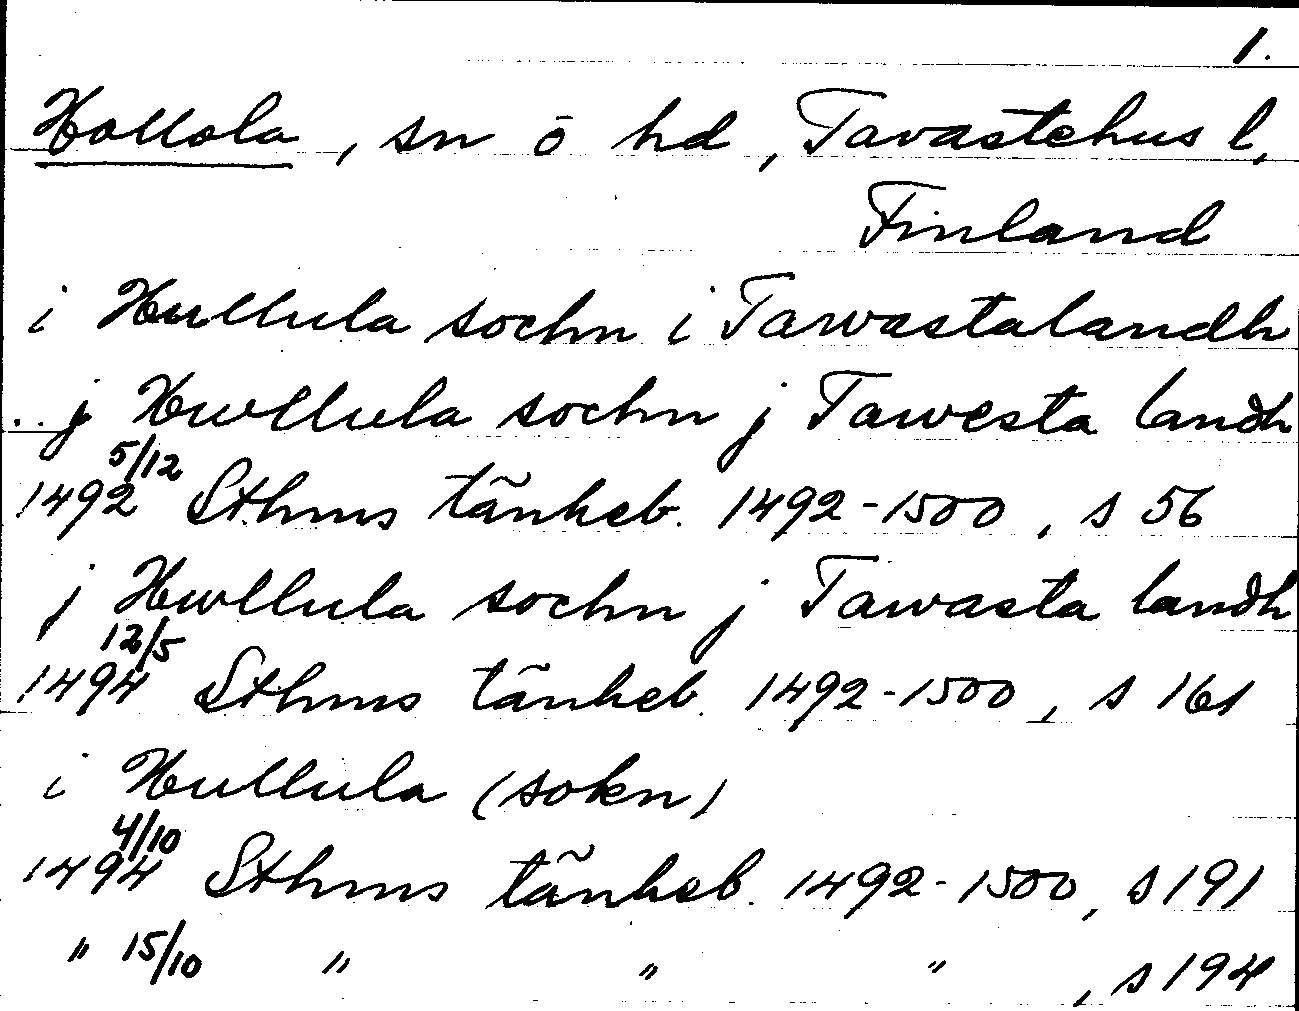 1.
Hollola, sn o hd, Tavastehus l,
Finland
i Hullula sochn i Tawastalandh
j Hwllula sochn j Tawesta landh
1492 5/12 Sthms tänkeb. 1492-1500, s 56
j Hwllula sochn j Tawasta landh
1494 12/5 Sthms tänkeb. 1492-1500, s 161
i Hullula (sokn)
1494 4/10 Sthms tänkeb. 1492-1500, s 191
" 15/10 " " ", s 194